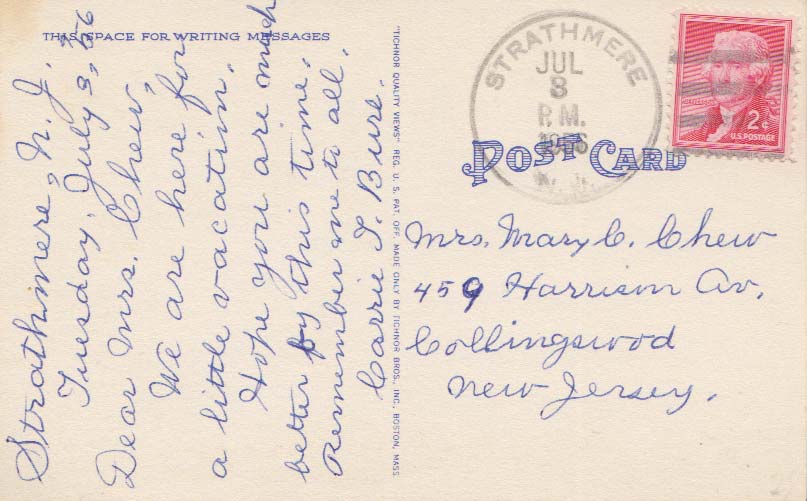 THIS SPACE FOR WRITING MESSAGES
Strathmere, N. J.
Tuesday, July 3, '56
Dear Mrs. Chew,
We are here for
a little vacation.
Hope you are much
better by this time.
Remember me to all.
Carrie T. Bure.
"TICHNOR QUALITY VIEWS" REG. U. S. PAT. OFF. MADE ONLY BY TICHNOR BROS., INC., BOSTON, MASS.
STRATHMERE
JUL
3
P.M.
1956
N.J.
2¢
U.S. POSTAGE
POST CARD
Mrs. Mary C. Chew
459 Harrison Av,
Collingswood
New Jersey.